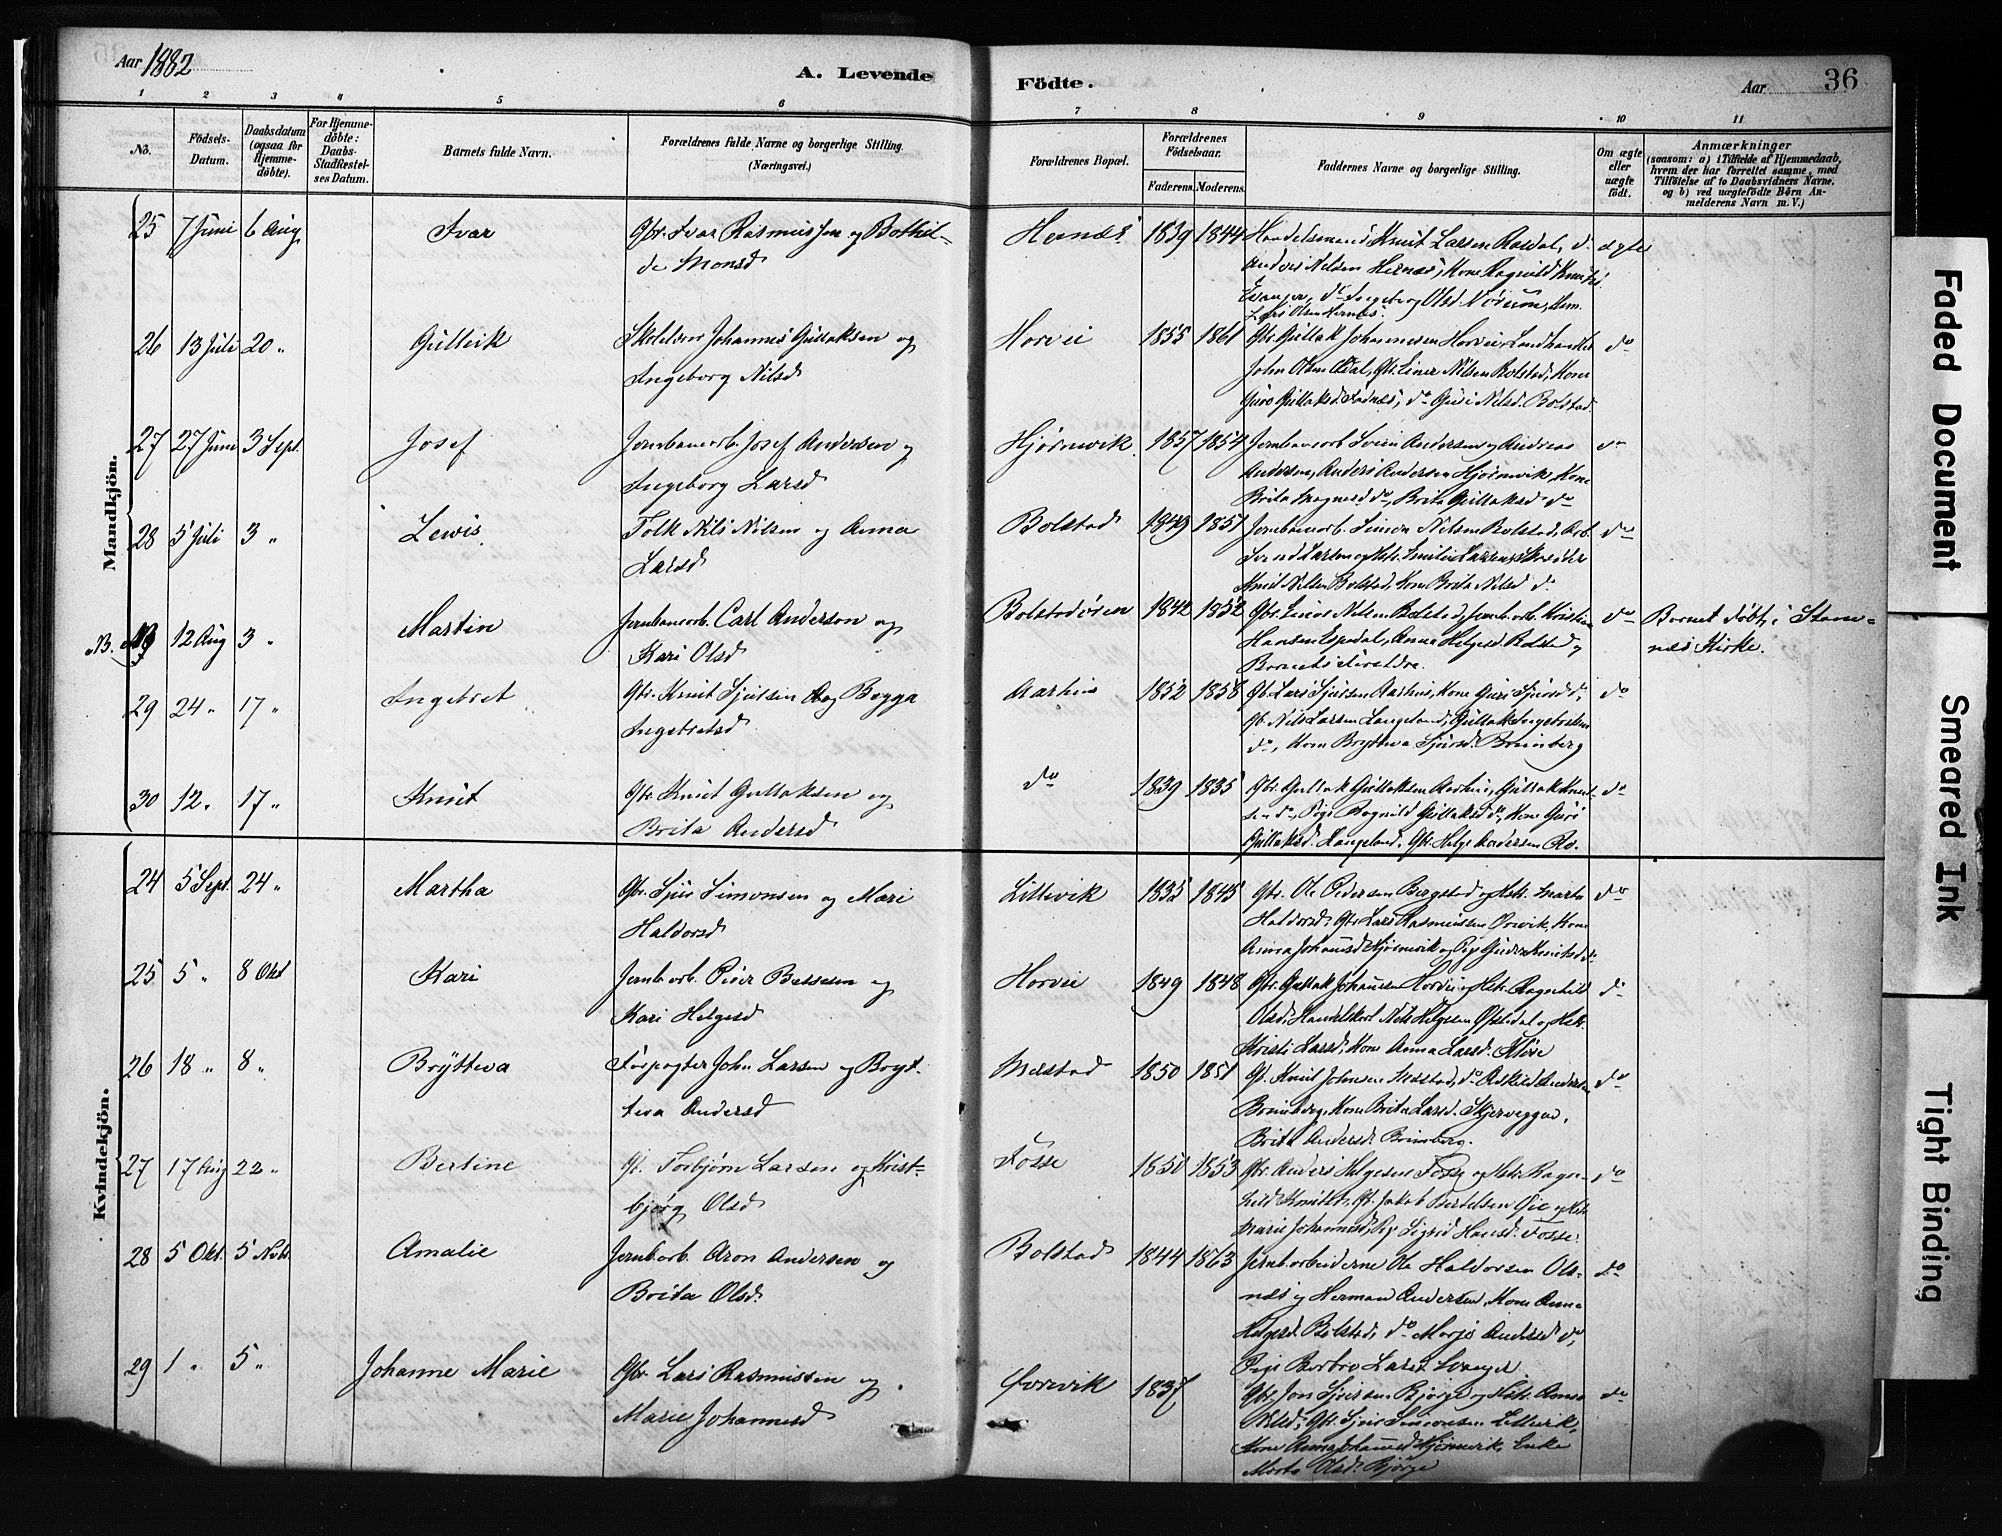 Aar 1882
A. Levende
Födte.
Aar
36
1 2 3 4 5 6 7 8 9 10 11
No.
Födsels-
Datum.
Daabsdatum
(ogsaa for
Hjemme-
döbte).
For Hjemme-
döbte:
Daabs-
Stadfæstel-
ses Datum.
Barnets fulde Navn.
Forældrenes fulde Navne og borgerlige Stilling.
(Næringsvei.)
Forældrenes Bopæl.
Forældrenes
Födselsaar.
Faderens. Moderens.
Faddernes Navne og borgerlige Stilling.
Om ægte
eller
uægte
födt.
Anmærkninger
(saasom: a) i Tilfælde af Hjemmedaab,
hvem der har forrettet samme, med
Tilføielse af to Daabsvidners Navne.
og b) ved uægtefödte Börn An-
melderens Navn m. V.)
Mandkjön.
25 7 Juni 6 Aug Ivar Gbr. Ivar Rasmussen og Bothil-
de Monsd
Hernæs 1839 1844 Handelsmand Knut Larsen Rasdal, do ægte
Anders Nilsen Hernæs, Kone Ragnild
Evanger, do Ingeborg Olsd
Lars Olsen Hernæs.
26 13 Juli 20 " Gullvik Johannes Gullaksen og
Ingeborg Nilsd
Horvei 1855 1861 Gbr. Gullak Johannesen Horvei, Landhandler do
John Olsen Nilsen Bolstad, Kone
Guro Gullaksd. Fadnæs, do Guri Nilsd. Bolstad
27 27 Juni 3 Sept. Josef Jernbanearb. Josef Andersen og
Ingeborg Larsd
Hjørnevik 1857 1854 Jernbanearb Svein Andersen og Andreas do
Andersen, Anders Andersen Hjørnevik, Kone
Brita Magnesd do, Brita Gullaksd do
28 5 Juli 3 " Lewis Folk Nils Nilsen og Anna
Larsd
Bolstad 1849 1851 Jernbanearb. Simon Nilsen Bolstad, Arb. do
Knut Nilsen Bolstad, Kone Brita Nilsd do
N.B. 12 Aug 3 " Martin Jernbanearb. Carl Anderson og
Kari Olsd
Bolstadøren 1842 1852 Gbr. Nilsen Bolstad, Jernb. arb. Kristian do
Hansen Espedal, Anna Helgesd. Bolstad og
Barnets Forældre.
Barnet døbt i Stam-
næs Kirke.
29 24 " 17 " Ingebret Gbr. Knut Sjursen og Brygga
Ingebretsd
Aarhus 1852 1858 Gb. Lars Sjursen Aarhus, Kone Guri Sjursd do, do
Gb. Nils Larsen Langeland, Gullak Ingebretsen
do, Kone Bryttva Sjursd. Brunborg
30 12 " 17 " Knut Gbr Knut Gullaksen og
Brita Andersd
do 1839 1835 Gbr. Gullak Gullaksen Aarhus, Gullak Knut- do
sen do, Pige Ragnild Gullaksd do, Kone Guri
Gullaksd. Langeland, Gbr. Helge Andersen
Kvindekjön.
24 5 Sept. 24 " Martha Gbr. Sjur Simonsen og Mari
Haldorsd
Littlevik 1835 1845 Gbr. Ole Pedersen Bergstad og Hstr. Marta do
Haldorsd, Gbr Lars Rasmussen Ørevik, Kone
Anna Johansd Hjørnevik og Pige Knutsd do
25 5 " 8 Okt Kari Jernb. arb. Peder og
Kari Helgesd
Horvei 1849 1848 Gbr. Gullak Johansen Horvei og Hstr. Ragnhild do
Olsd, Handelskarl Nils Helgesen og Hstr.
Kristi Larsd, Kone Anna Larsd.
26 18 " 8 " Bryttva Forpagter John Larsen og Bryt-
teva Andersd
Mestad 1850 1851 Gb. Knut Johnsen Mestad, do do
Brunborg, Kone Brita Larsd. Skjerveggen,
Brita Andersd. Brunborg.
27 17 Aug 22 " Bertine Gb. Torbjørn Larsen og Krist-
bjørg Olsd
Fosse 1850 1853 Gbr. Anders Helgesen Fosse og Hstr. Ragn- do
hild Knutsd, Gb. Jakob Bertelsen og Hstr.
Marie Johannesd, Pige Sigrid Hansd. Fosse.
28 5 Okt. 5 Novb. Amalie Jernb. arb. Aron Andersen og
Brita Olsd.
Bolstad 1844 1863 Jernb. arbeiderne Ole Haldorsen Ols- do
næs og Herman Andersen, Kone Anna
Helgesd. Bolstad, do Andersd do,
Pige Barbro Larsd Evanger
29 1 " 5 " Johanne Marie Gbr. Lars Rasmussen og
Marie Johannesd
Ørevik 1837 Gbr. Jon Sjursen Bjørge og Hstr. Anna do
Olsd, Gbr. Sjur Simonsen Littlevik,
Kone Anna Johansd Hjørnevik, Enke
Marta Olsd. Bjørge
Faded Document
Smeared Ink
Tight Binding